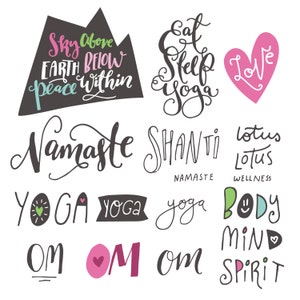 Sky Above
EARTH BELOW
peace within
Eat
Sleep
Yoga
LOVE
Namaste
SHANTI
NAMASTE
lotus
LOTUS
WELLNESS
YOGA
YOGA
yoga
BODY
MIND
SPIRIT
OM
OM
om